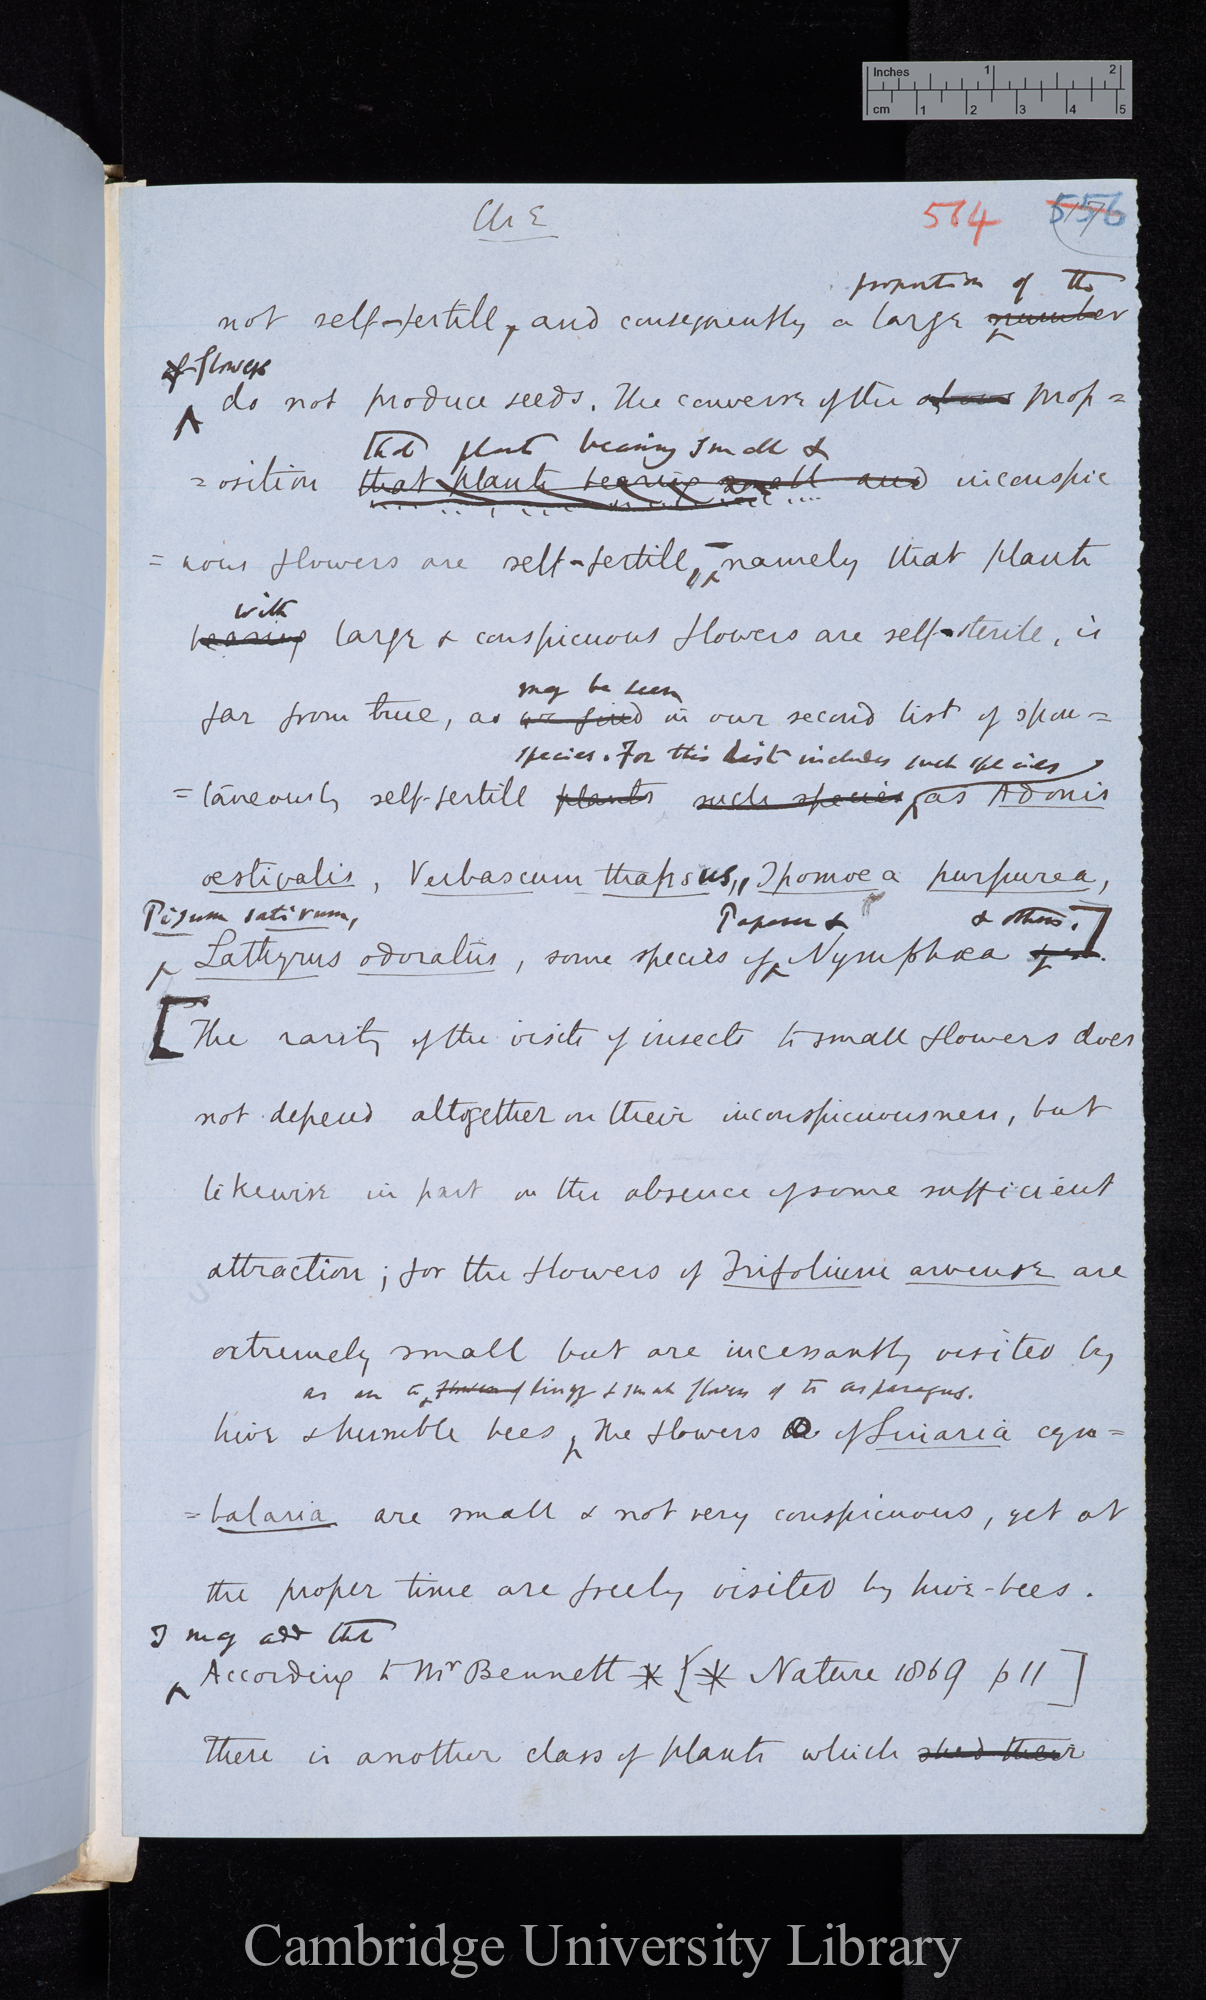 Inches 1 2
cm 1 2 3 4 5
Ch E 514 556
proportion of the
not self-fertile, and consequently a large number
of flowers
do not produce seeds. The converse of the above prop=
that plants bearing small &
=osition that plants bearing small and inconspic
=uous flowers are self-fertile,, — namely that plants
with
bearing large & conspicuous flowers are self-sterile, is
may be seen
far from true, as we find in our second list of spon=
species. For this list includes such species
=taneously self-fertile plants such species, as Adonis
œstivalis, Verbascum thapsus,, Ipomoea purpurea,
Pisum sativum, Papaver & & others.]
Lathyrus odoratus, some species of Nymphæa
[The rarity of the visits of insects to small flowers does
not depend altogether on their inconspicuousness, but
likewise in part on the absence of some sufficient
attraction; for the flowers of Trifolium arvense are
extremely small but are incessantly visited by
as are & small flowers of the asparagus.
hive & humble bees, The flowers of Linaria cym=
=balaria are small & not very conspicuous, yet at
the proper time are freely visited by hive-bees.
I may add that
According to Mr Bennett * [* Nature 1869 p 11]
there is another class of plants which shed their
Cambridge University Library